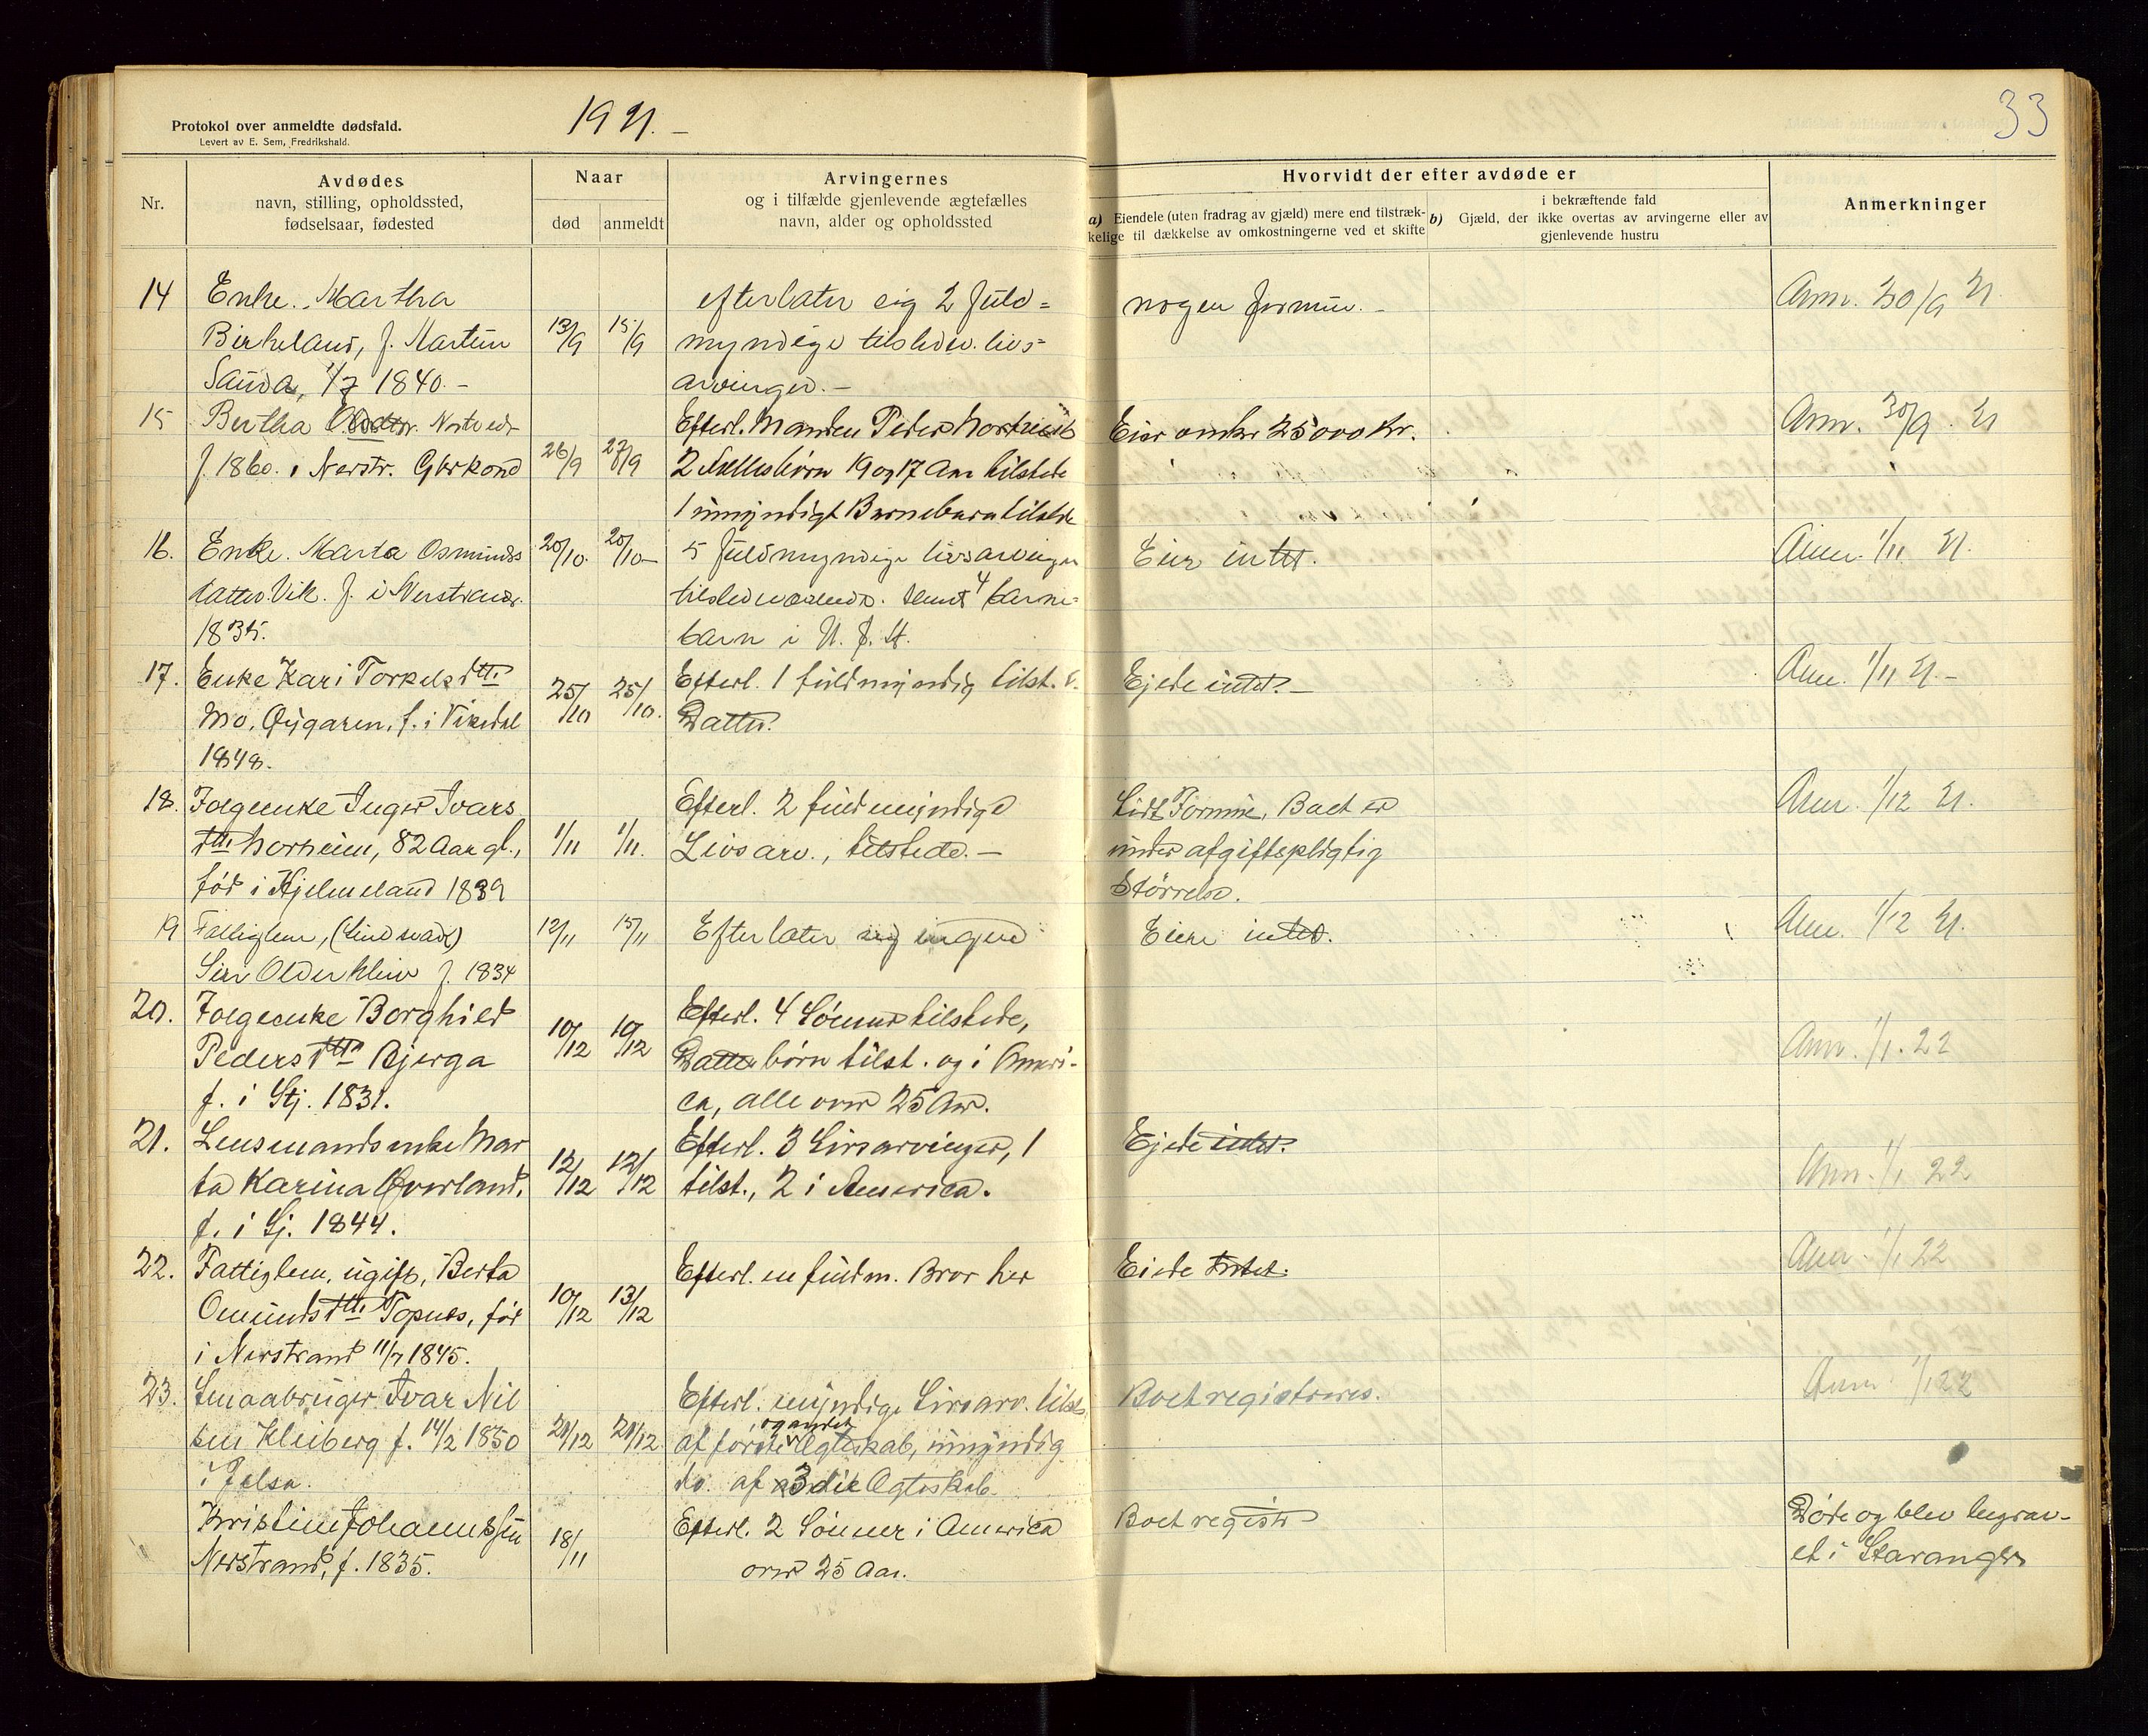 Protokol over anmeldte dødsfald.
Levert av E. Sem, Fredrikshald.
1921. –
33
Nr.
Avdødes
navn, stilling, opholdssted,
fødselsaar, fødested
Naar
død
anmeldt
Arvingernes
og i tilfælde gjenlevende ægtefælles
navn, alder og opholdssted
Hvorvidt der efter avdøde er
a) Eiendele (uten fradrag av gjæld) mere end tilstræk-
kelige til dækkelse av omkostningerne ved et skifte
i bekræftende fald
b) Gjæld, der ikke overtas av arvingerne eller av
gjenlevende hustru
Anmerkninger
14 Enke. Martha efterlater sig 2 fuld= nogen formue. – Anm. 30/9 21.
Birkeland, f. Martin 13/9 15/9 myndige tilstedv. livs-
Sauda, 1/7 1840. – arvinger. –
15 Bertha Nortveit Efterl. Manden Peder Eier omkr 25000 Kr. Anm. 30/9. 21
f. 1860. i Nerstr. 26/9 27/9 2 Fællesbørn 19 og 17 Aar tilstede
1 umyndigt Barnebarn tilstede
16. Enke. Marta Osmunds 20/10. 20/10– 5 fuldmyndige livsarvinger Eier intet. Anm. 1/11 21.
datter Vik. f. i Nerstrand. tilstedeværende. samt 4 barne=
1835. barn i U. S. A.
17. Enke Kari Torkelsdtt. 25/10 25/10. Efterl. 1 fuldmyndig tilst. v. Ejede intet. – Anm. 1/11 21. –
Mo, Øygaren, f. i Vikedal Datter.
1848.
18. Folgeenke Inger Ivars Efterl. 2 fuldmyndige Lidt Formue, Boet er Anm. 1/12 21.
dtt. Norheim, 82 Aar gl., 1/11 1/11. Livsarv., tilstede. – under afgiftspligtig
født i Hjelmeland 1839 Størrelse.
19 Fattiglem, 12/11 15/11 Efterlater sig ingen Eier intet. Anm. 1/12 21.
Siri Olderkleiv f. 1834
20. Folgeenke Borghild 10/12 10/12 Efterl. 4 Sønner tilstede, Anm. 1/1. 22
Pedersdtt. Bjerga Datterbørn tilst. og i Ameri-
f. i Sj. 1831. ca, alle over 25 Aar.
21. Lensmandsenke Mar 12/12 12/12 Efterl. 3 Livsarvinger, 1 Ejede intet. Anm. 1/1 22
ta Karina Øverland, tilst., 2 i America.
f. i Sj. 1844.
22. Fattiglem, ugift, Berta 10/12 13/12 Efterl. en fuldm. Bror her Eiede intet. Anm. 1/1 22
Omundsdtt. Topnes, født
i Nerstrand 11/7 1845.
23. Smaabruger Ivar Nil Efterl. myndige Livsarv. tilst. Boet registreres. Anm. 1/1 22
sen Kleiberg f. 14/2 1850 21/12 21/12 af første og andet Ægteskab, umyndig
i Jelsa. do. af 3die Ægteskab.
Kristine Johannessen 18/11 Efterl. 2 Sønner i America Boet registr Døde og blev begrav-
Nerstrand, f. 1835. over 25 Aar. et i Stavanger